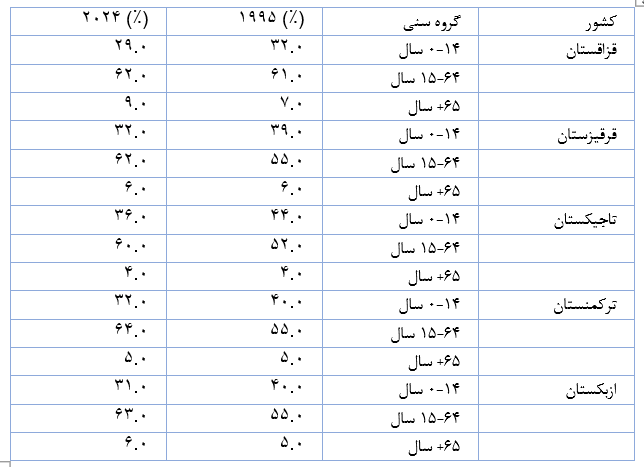 کشور گروه سنی ۱۹۹۵ (٪) ۲۰۲۴ (٪)
قزاقستان ۰-۱۴ سال ۳۲.۰ ۲۹.۰
۱۵-۶۴ سال ۶۱.۰ ۶۲.۰
۶۵+ سال ۷.۰ ۹.۰
قرقیزستان ۰-۱۴ سال ۳۹.۰ ۳۲.۰
۱۵-۶۴ سال ۵۵.۰ ۶۲.۰
۶۵+ سال ۶.۰ ۶.۰
تاجیکستان ۰-۱۴ سال ۴۴.۰ ۳۶.۰
۱۵-۶۴ سال ۵۲.۰ ۶۰.۰
۶۵+ سال ۴.۰ ۴.۰
ترکمنستان ۰-۱۴ سال ۴۰.۰ ۳۲.۰
۱۵-۶۴ سال ۵۵.۰ ۶۴.۰
۶۵+ سال ۵.۰ ۵.۰
ازبکستان ۰-۱۴ سال ۴۰.۰ ۳۱.۰
۱۵-۶۴ سال ۵۵.۰ ۶۳.۰
۶۵+ سال ۵.۰ ۶.۰